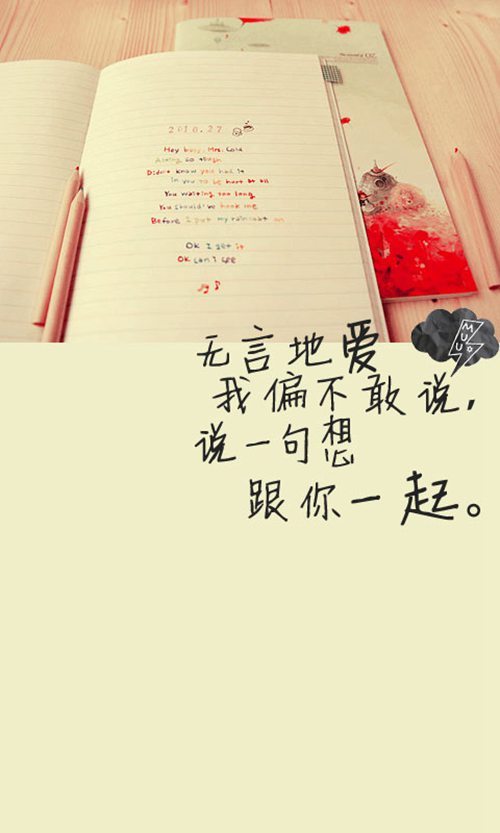 2010.27
Hey boys, Mrs. Cold
Acting so tough
Didn't know you had it
in you to be hurt at all
You waiting too long
You should've hook me
Before I put my raincoat on
OK I get it
OK can I see
MUUO
无言地爱
我偏不敢说,
说一句想
跟你一起。